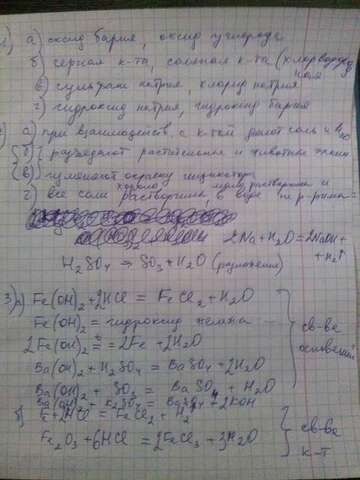 а) оксид бария, оксид углерода
б) серная к-та, соляная к-та (хлороводородная
в) сульфат натрия, хлорид натрия
г) гидроксид натрия, гидроксид бария
а) при взаимодейств. с к-той дают соль и
б) разъедают растительные и животные ткани
в) изменяют окраску индикатора
г) все соли хорошо растворимы, мало растворимы и
в воде
2Na + H2O = 2NaOH +
+ H2↑
H2SO4 → SO3 + H2O (разложения)
3) а) Fe(OH)2 + 2HCl = FeCl2 + H2O
Fe(OH)2 = гидроксид железа
2Fe(OH)2 = 2Fe + 2H2O
св-ва
оснований
Ba(OH)2 + H2SO4 = BaSO4 + 2H2O
Ba(OH)2 + SO3 = BaSO4 + H2O
Ba(OH)2 + K2SO4 = BaSO4 + 2KOH
б) Fe + 2HCl = FeCl2 + H2
Fe2O3 + 6HCl = 2FeCl3 + 3H2O
св-ва
к-т